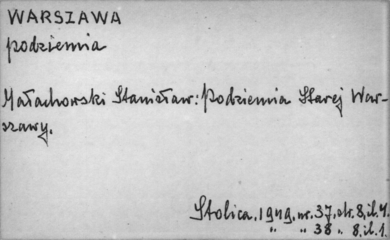 WARSZAWA
podziemia
Małachowski Stanisław: Podziemia Starej War-
szawy.
Stolica, 1949, nr. 37, str. 8, il. 4.
" " 38 " 8, il. 1.